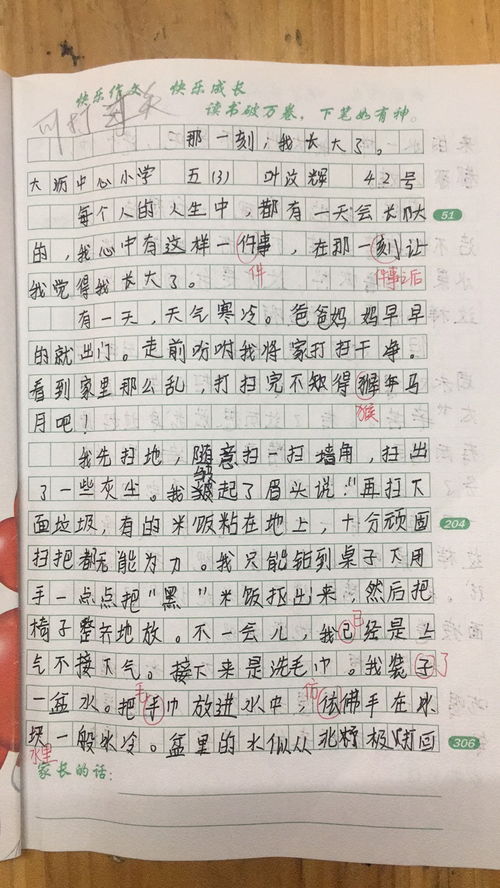 快乐作文 快乐成长
读书破万卷，下笔如有神。
可打
那一刻，我长大了。
大沥中心小学 五(3) 叶汶辉 42号
每个人的人生中，都有一天会长大 51
的，我心中有这样一件事，在那一刻让
件 件事之后
我觉得我长大了。
有一天，天气寒冷。爸爸妈妈早早
的就出门。走前吩咐我将家打扫干净。
看到家里那么乱，打扫完不知得猴年马
猴
月吧！
我先扫地，随意扫一扫墙角，扫出
了一些灰尘。我皱起了眉头说："再扫下
面垃圾，有的米饭粘在地上，十分顽固 204
扫把都无能为力。我只能钻到桌子下用
手一点点把"黑"米饭抠出来，然后把
椅子整齐地放。不一会儿，我己经是上
已
气不接下气。接下来是洗毛巾。我装子
了
一盆水。把手巾放进水中，依佛手在冰
手 仿
块一般水冷。盆里的水似从北极打回 306
水里
家长的话：